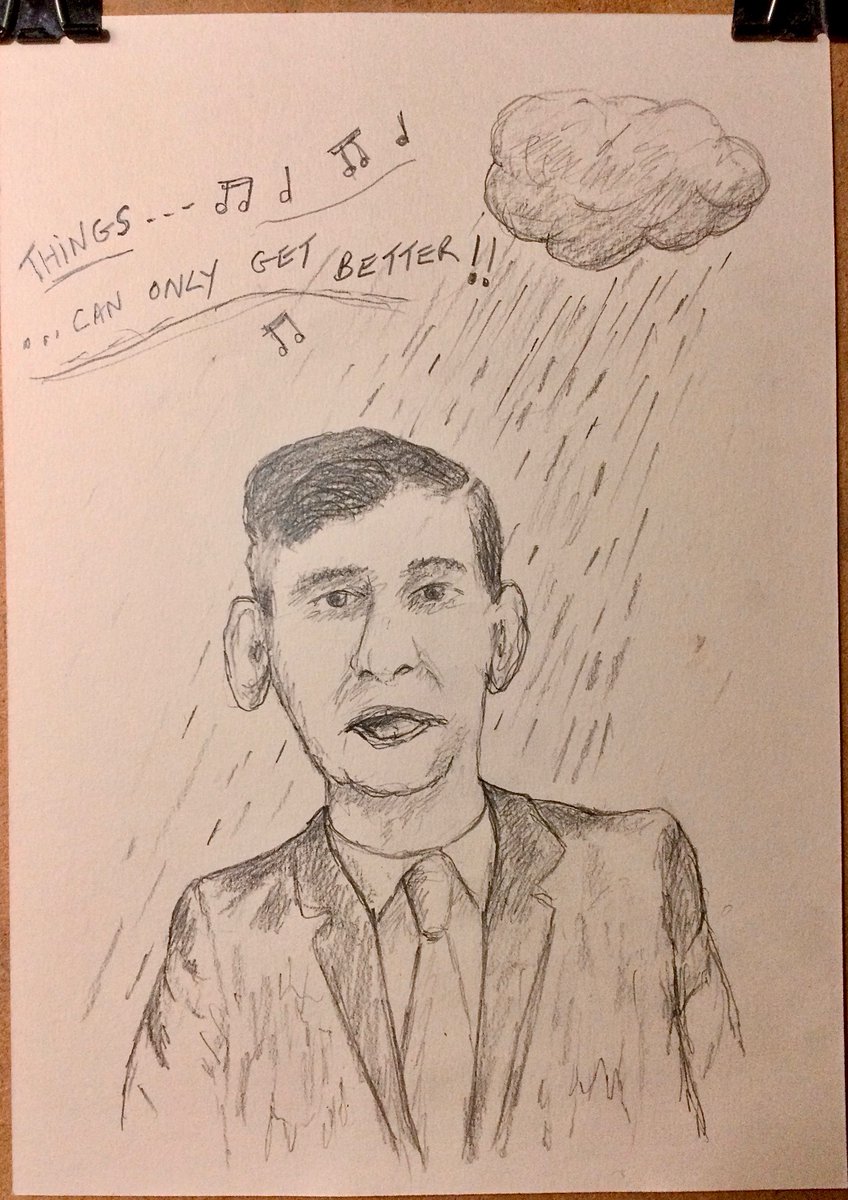 THiNGS...
...CAN ONLY GET BETTER!!